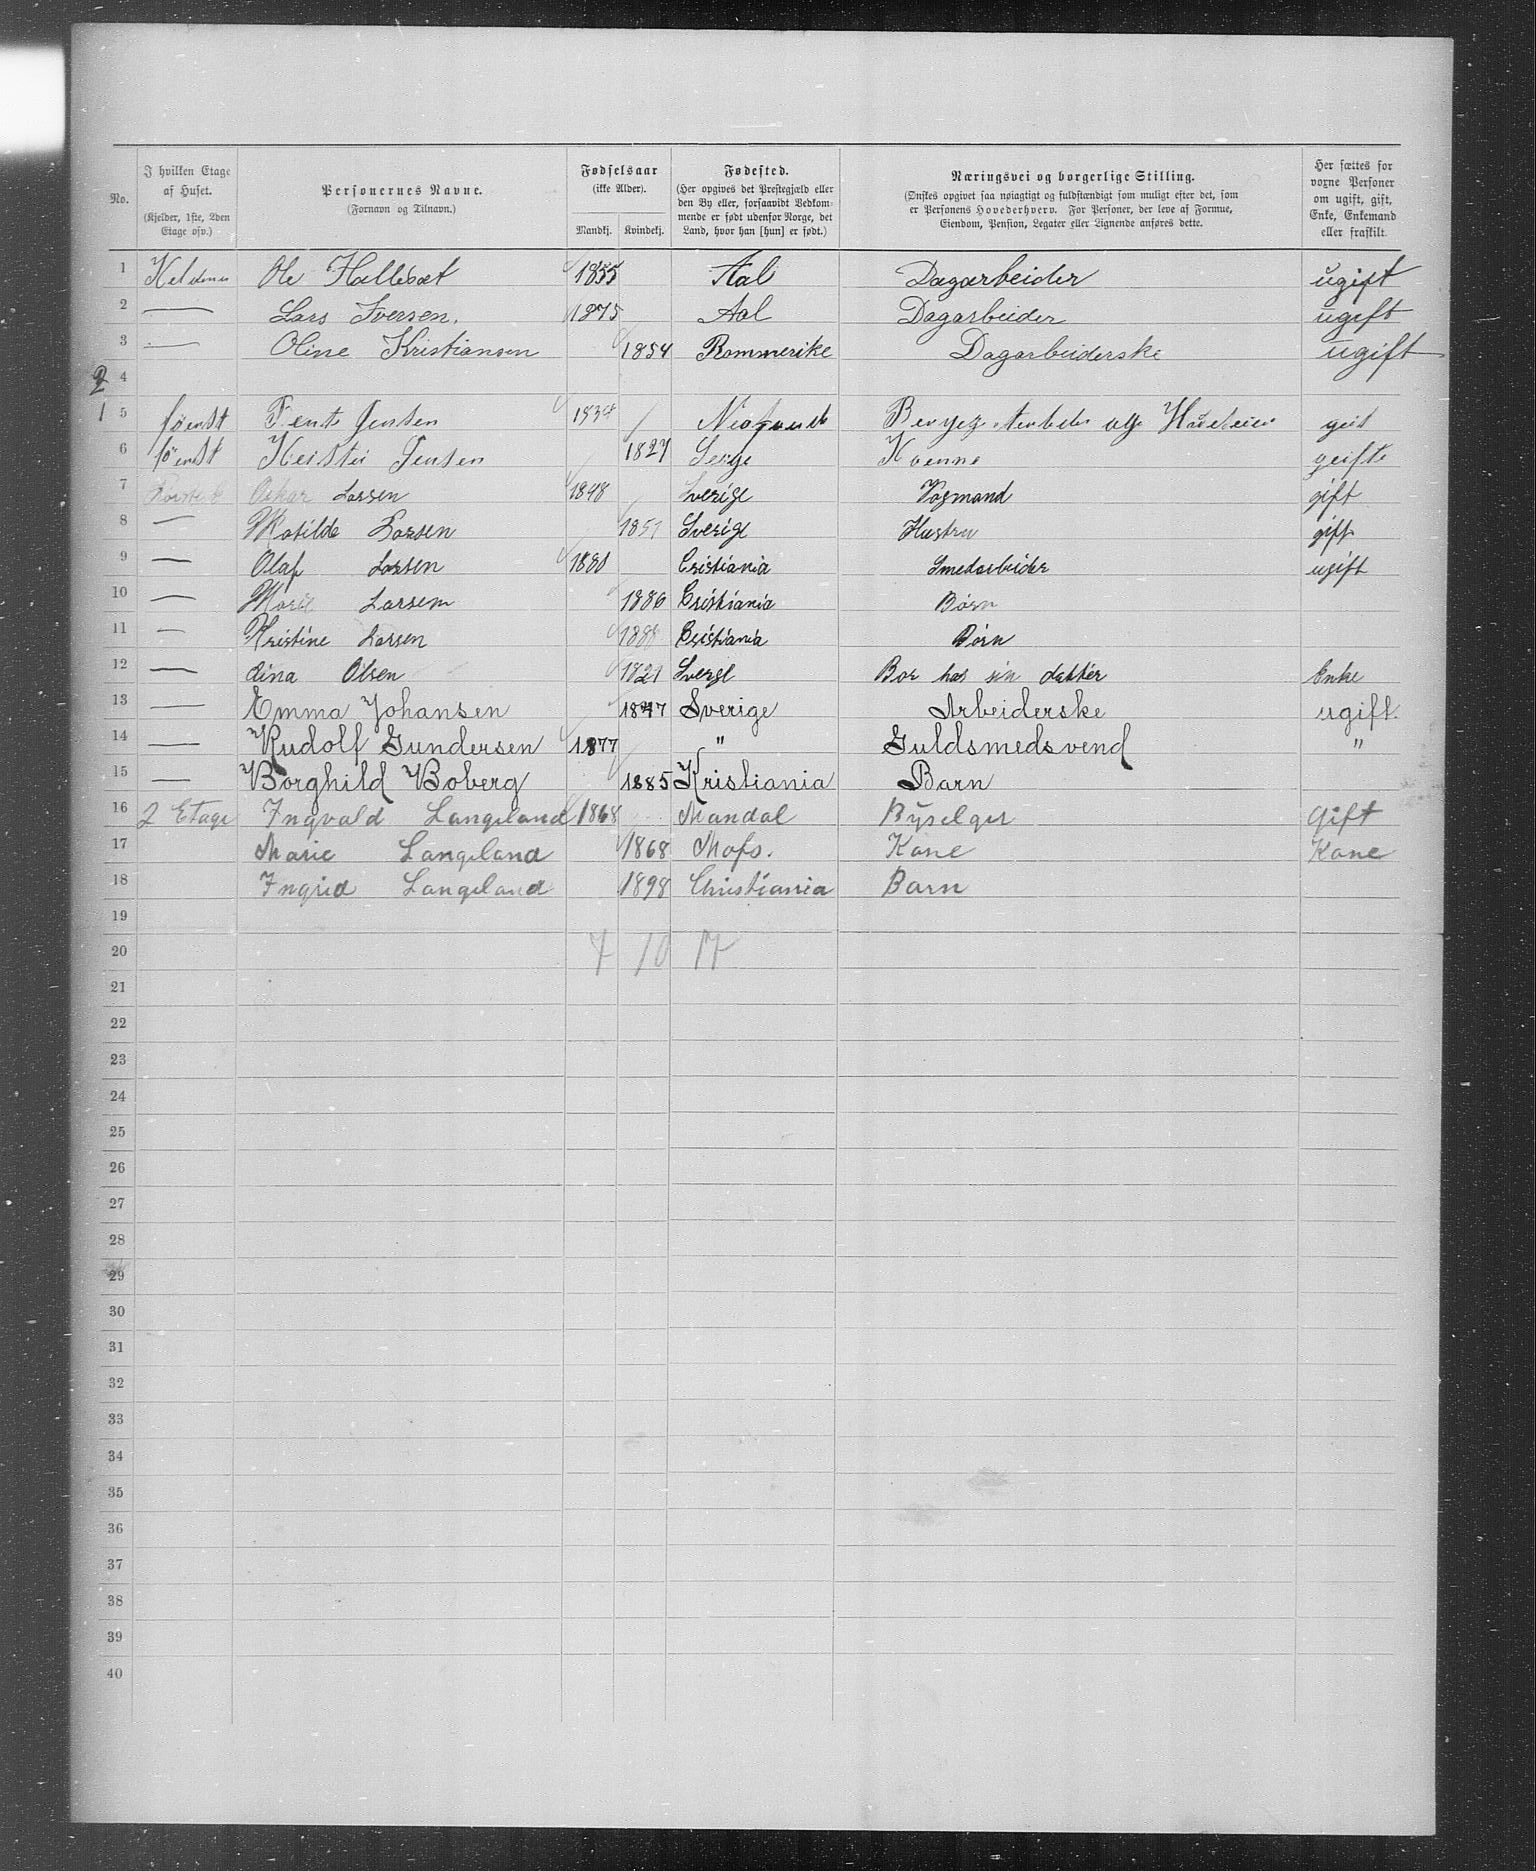 No. | I hvilken Etage af Huset. (Kjelder, 1ste, 2den Etage osv.) | Personernes Navne. (Fornavn og Tilnavn.) | Fødselsaar (ikke Alder). Mandkj. Kvindekj. | Fødested. (Her opgives det Prestegjæld eller den By eller, forsaavidt Vedkommende er født udenfor Norge, det Land, hvor han [hun] er født.) | Næringsvei og borgerlige Stilling. (Ønskes opgivet saa nøiagtigt og fuldstændigt som muligt efter det, som er Personens Hovederhverv. For Personer, der leve af Formue, Eiendom, Pension, Legater eller Lignende anføres dette. | Her sættes for voxne Personer om ugift, gift, Enke, Enkemand eller fraskilt.
1 Ole Hallesæt 1855 Aal Dagarbeider ugift
2 — Lars Iversen. 1875 Aal Dagarbeider ugift
3 — Oline Kristiansen 1854 Rommerike Dagarbeiderske ugift
2 4
1 5 føenst Jensen 183 geit
6 føenst Jensen 1827 Kvenne geifte
7 Oskar Larsen 1848 Sverige Vogmand gift
8 — Matilde Larsen 185 Sverige Hustru gift
9 — Olaf Larsen 1880 Cristiania Smedarbeider ugift
10 — Marie Larsem 1886 Cristiania Börn
11 — Kristine Larsen 188 Cristiania Börn
12 — Lina Olsen 182 Bor hos sin dakter Enke
13 — Emma Johansen 1847 Sverige Arbeiderske ugift.
14 — Rudolf Gundersen 1877 " Guldsmedsvend "
15 — Borghild Boberg 1885 Kristiania Barn
16 2 Etage Ingvald Langeland 1868 Mandal Byselger Gift
17 Marie Langeland 1868 Mofs. Kone Kone
18 Ingrid Langeland 1898 Christiania Barn
19
20 7 10 17
21
22
23
24
25
26
27
28
29
30
31
32
33
34
35
36
37
38
39
40